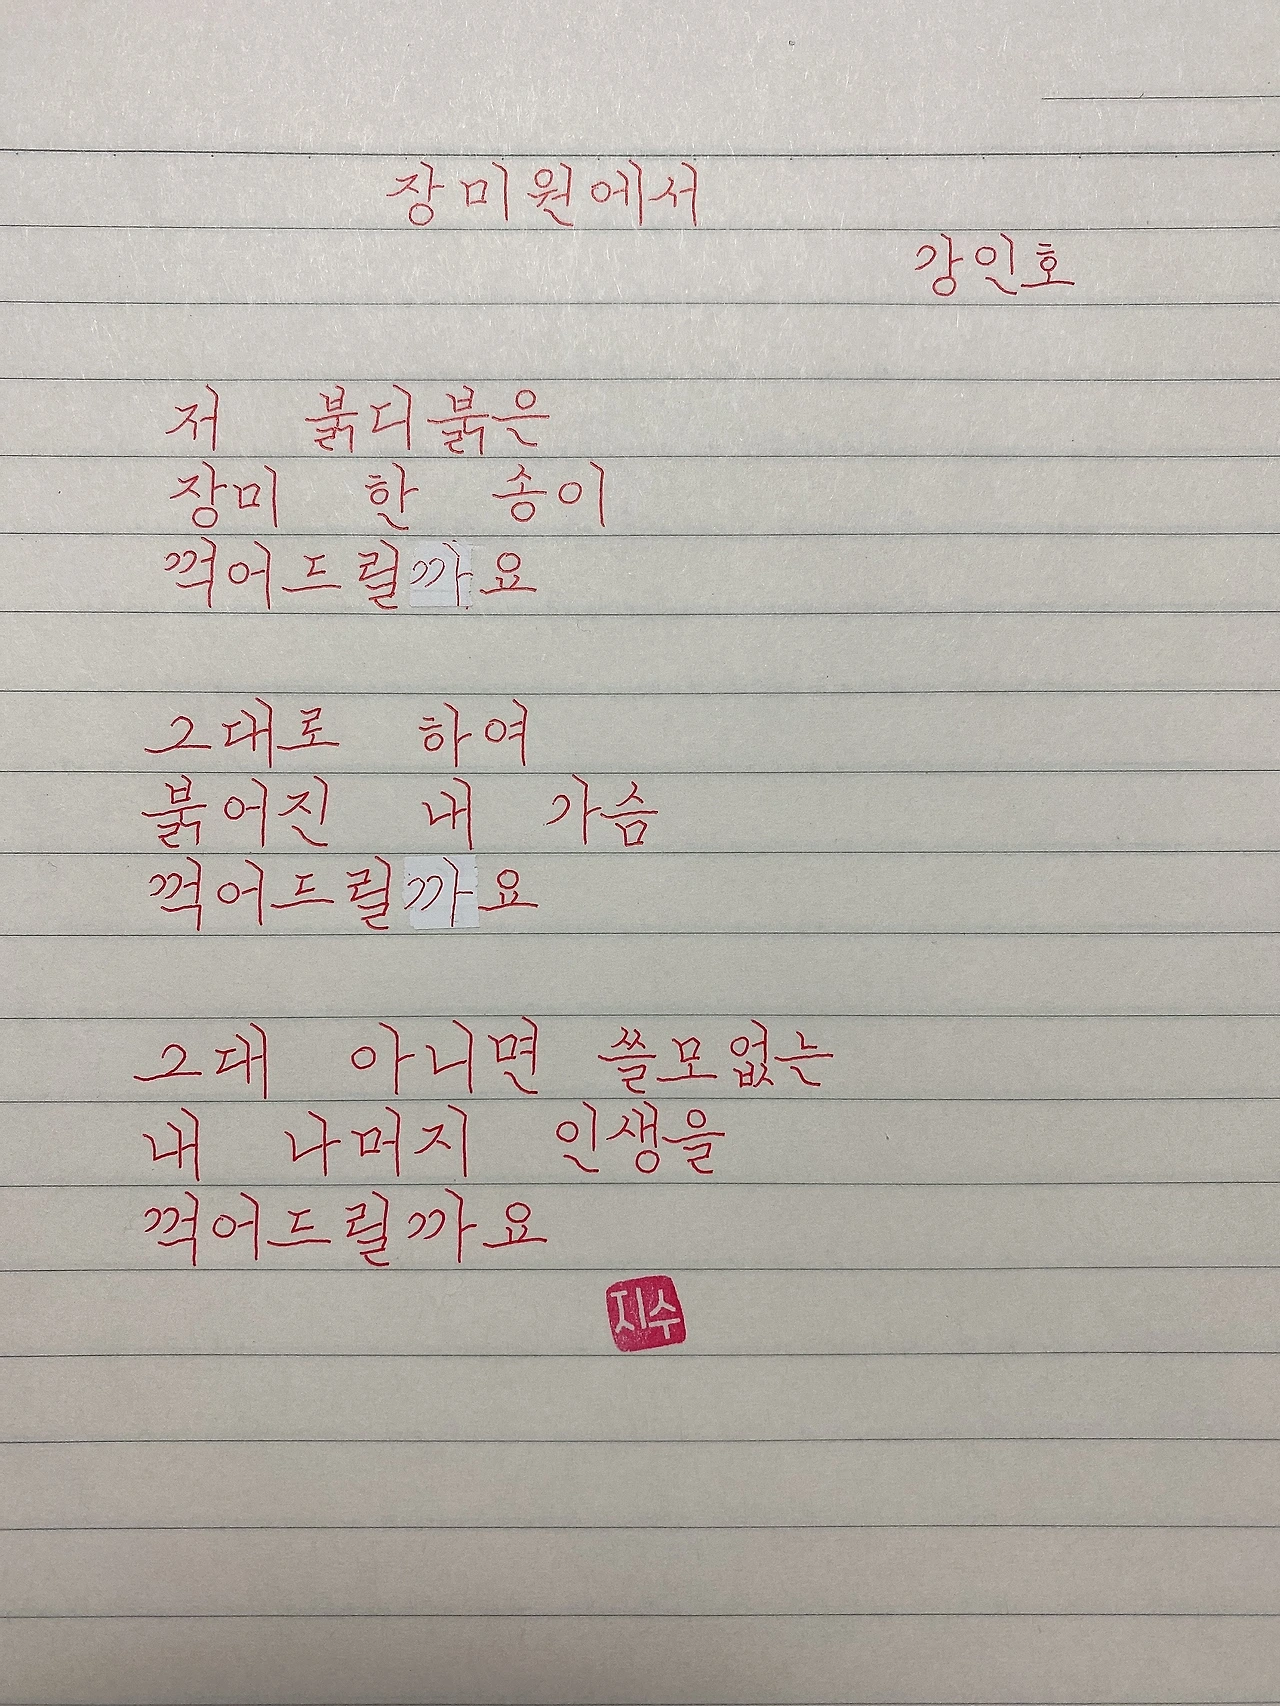 장미원에서
강인호
저 붉디붉은
장미 한 송이
꺽어드릴까요
그대로 하여
붉어진 내 가슴
꺽어드릴까요
그대 아니면 쓸모없는
내 나머지 인생을
꺽어드릴까요
지수